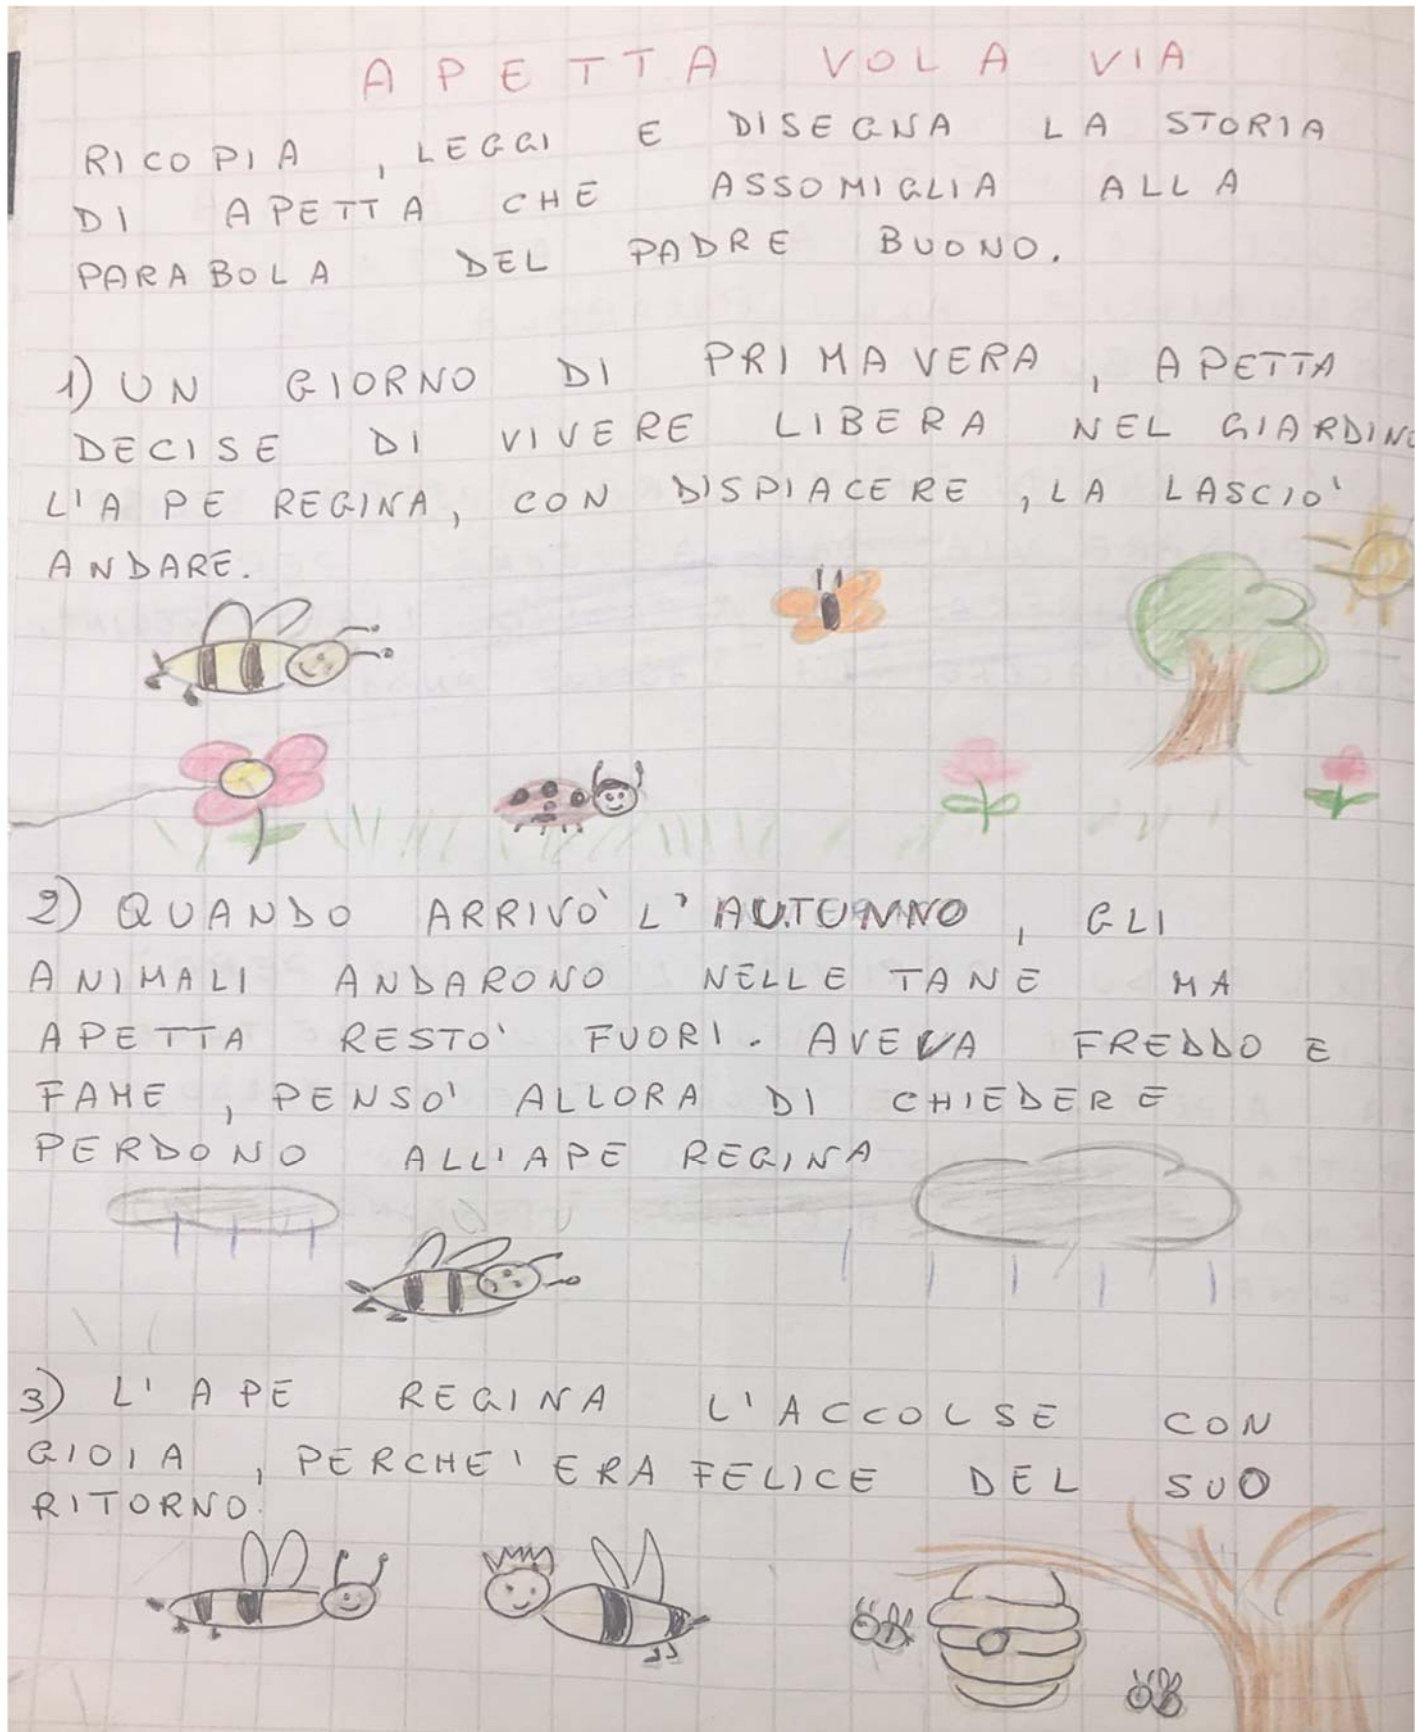 APETTA VOLA VIA
RICOPIA, LEGGI E DISEGNA LA STORIA
DI APETTA CHE ASSOMIGLIA ALLA
PARABOLA DEL PADRE BUONO.
1) UN GIORNO DI PRIMAVERA, APETTA
DECISE DI VIVERE LIBERA NEL GIARDINO
L'APE REGINA, CON DISPIACERE, LA LASCIO'
ANDARE.
2) QUANDO ARRIVO' L'AUTUNNO, GLI
ANIMALI ANDARONO NELLE TANE MA
APETTA RESTO' FUORI. AVEVA FREDDO E
FAME, PENSO' ALLORA DI CHIEDERE
PERDONO ALL'APE REGINA
3) L'APE REGINA L'ACCOLSE CON
GIOIA, PERCHE' ERA FELICE DEL SUO
RITORNO.